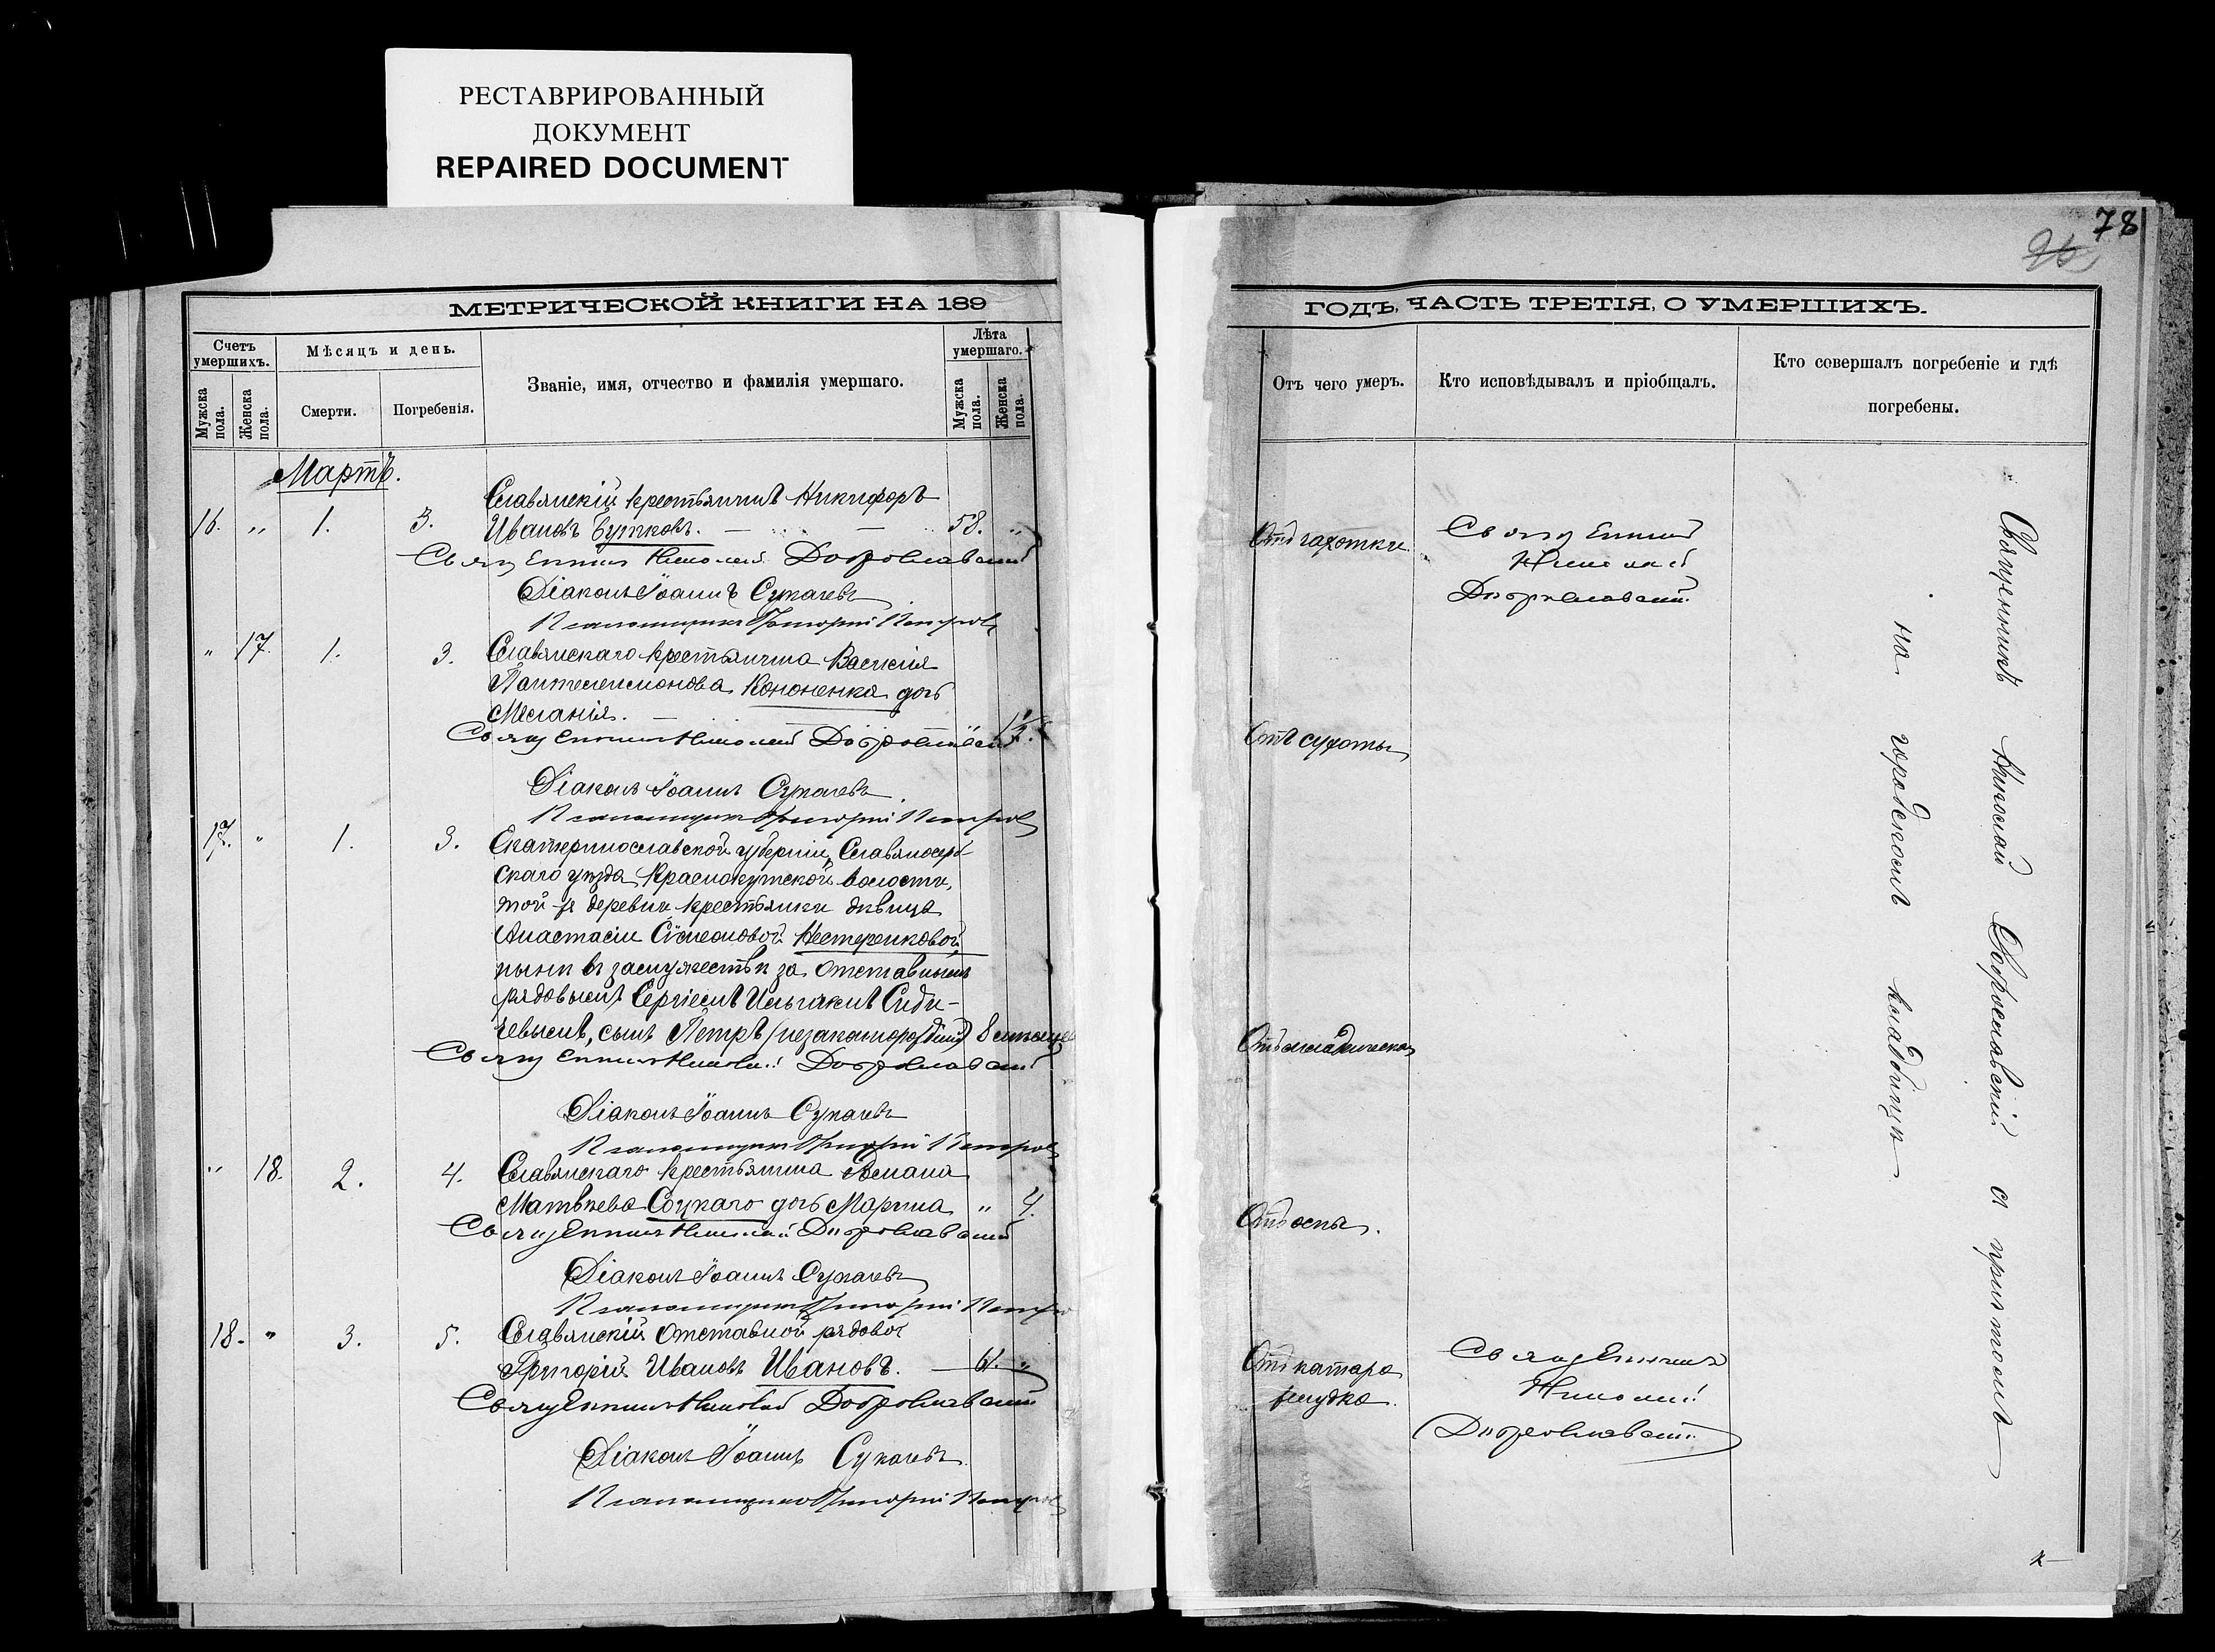 РЕСТАВРИРОВАННЫЙ
ДОКУМЕНТ
REPAIRED DOCUMENT
МЕТРИЧЕСКОЙ КНИГИ НА 189
Счетъ умершихъ.
Мужска пола.
Женска пола.
Мѣсяцъ и день.
Смерти.
Погребенія.
Званіе, имя, отчество и фамилія умершаго.
Лѣта умершаго.
Мужска пола.
Женска пола.
Мартъ.
Славянскій крестьянинъ Никифоръ
16. " 1. 3. Ивановъ Бутковъ. — — 58. "
Священникъ Николай Доброславскій
Діаконъ Іоаннъ Сукачевъ
Псаломщикъ Григорій Петровъ
" 17. 1. 3. Славянскаго крестьянина Василія
Пантелеимонова Кононенка дочь
Меланія. — — 1½.
Священникъ Николай Доброславскій
Діаконъ Іоаннъ Сукачевъ
Псаломщикъ Григорій Петровъ
17. " 1. 3. Екатеринославской губерніи, Славяносерб-
скаго уѣзда, Краснокутской волости,
той-же деревни крестьянки дѣвицы
Анастасіи Сѵмеоновой Нестеренковой,
нынѣ въ замужествѣ за отставнымъ
рядовымъ Сергіемъ Ильинымъ
сынъ Петръ (незаконнорожденный) 8 мѣсяцев
Священникъ Николай Доброславскій
Діаконъ Іоаннъ Сукачевъ
Псаломщикъ Григорій Петровъ
" 18. 2. 4. Славянскаго крестьянина Романа
Матвѣева Соцкаго дочь Марина " 4.
Священникъ Николай Доброславскій
Діаконъ Іоаннъ Сукачевъ
Псаломщикъ Григорій Петров
18. " 3. 5. Славянскій отставной рядовой
Григорій Ивановъ Ивановъ. — 61. "
Священникъ Николай Доброславскій
Діаконъ Іоаннъ Сукачевъ.
Псаломщикъ Григорій Петровъ
78
ГОДЪ, ЧАСТЬ ТРЕТІЯ, О УМЕРШИХЪ.
Отъ чего умеръ.
Кто исповѣдывалъ и пріобщалъ.
Кто совершалъ погребеніе и гдѣ
погребены.
Отъ чахотки.
Священникъ
Николай
Доброславскій
Отъ сухоты
Отъ младенческой
Отъ оспы.
Отъ катара
желудка.
Священникъ
Николай
Доброславскій
Священникъ Николай Доброславскій съ причтомъ
на городскомъ кладбищѣ